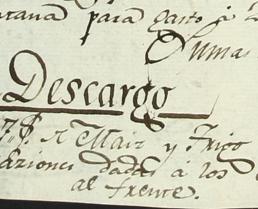 para gasto á
Suma
Descargo
Maiz y Trigo
raziones dadas á los
al frente.